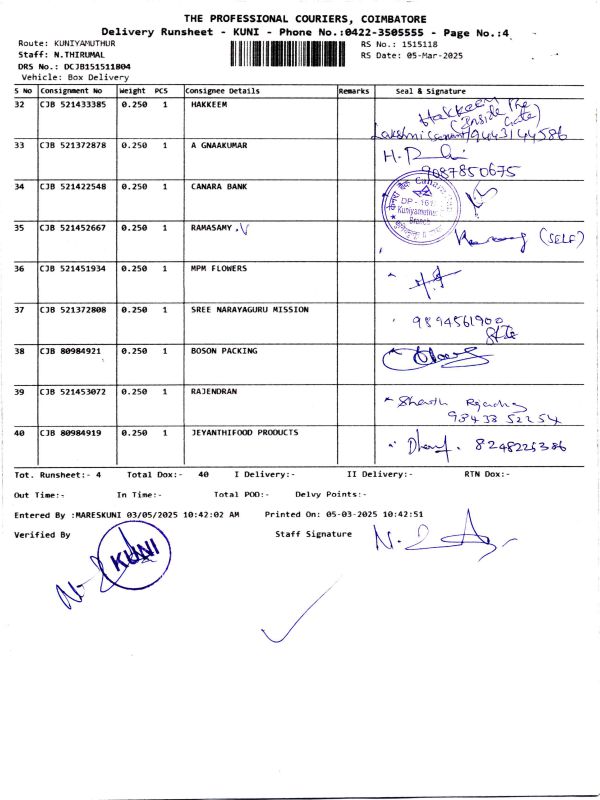 THE PROFESSIONAL COURIERS, COIMBATORE
Delivery Runsheet - KUNI - Phone No.:0422-3505555 - Page No.:4
Route: KUNIYAMUTHUR RS No.: 1515118
Staff: N.THIRUMAL RS Date: 05-Mar-2025
DRS No.: DCJB151511804
Vehicle: Box Delivery
S No Consignment No Weight PCS Consignee Details Remarks Seal & Signature
32 CJB 521433385 0.250 1 HAKKEEM Hakkeem
(Inside the Gate)
33 CJB 521372878 0.250 1 A GNAAKUMAR
9087850675
34 CJB 521422548 0.250 1 CANARA BANK
Kuniyamuthur
Branch
35 CJB 521452667 0.250 1 RAMASAMY ,V (SELF)
36 CJB 521451934 0.250 1 MPM FLOWERS
37 CJB 521372808 0.250 1 SREE NARAYAGURU MISSION 9894561900
38 CJB 80984921 0.250 1 BOSON PACKING
39 CJB 521453072 0.250 1 RAJENDRAN
98438 52254
40 CJB 80984919 0.250 1 JEYANTHIFOOD PRODUCTS 8248225386
Tot. Runsheet:- 4 Total Dox:- 40 I Delivery:- II Delivery:- RTN Dox:-
Out Time:- In Time:- Total POD:- Delvy Points:-
Entered By :MARESKUNI 03/05/2025 10:42:02 AM Printed On: 05-03-2025 10:42:51
Verified By Staff Signature
KUNI